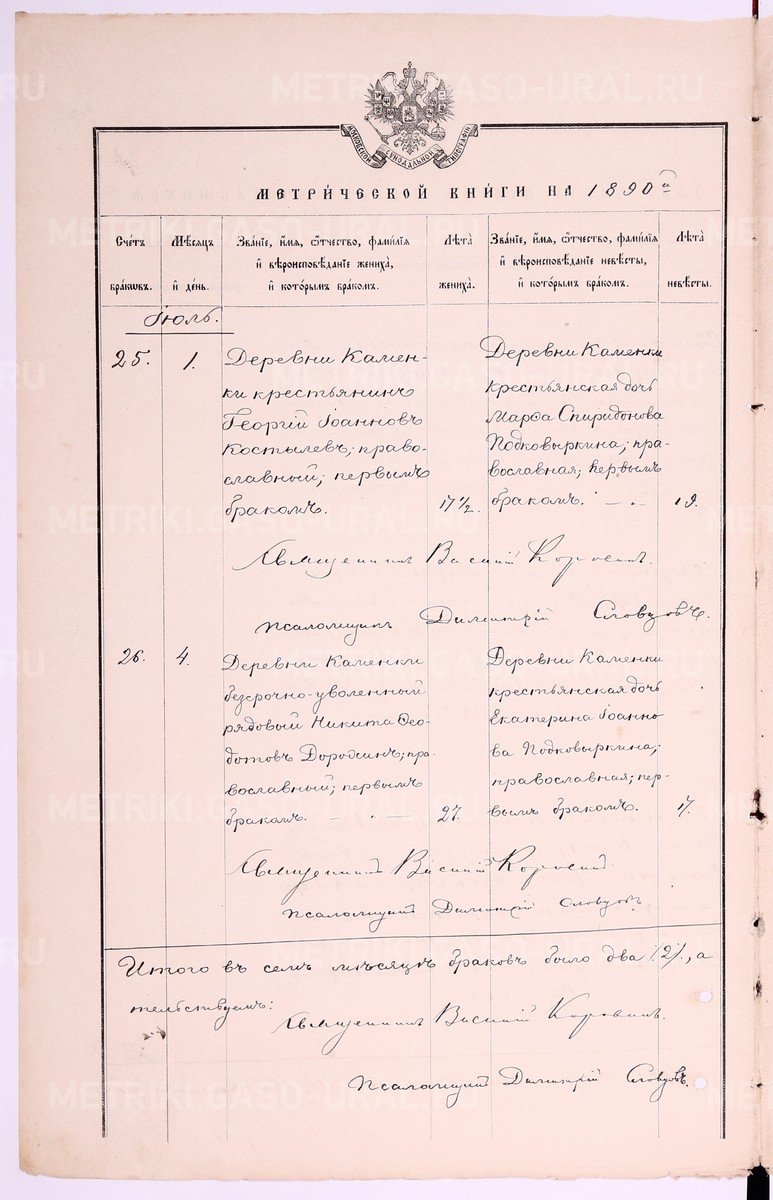 METRIKI.GASO-URAL.RU
МОСКОВСКОЙ СѴНОДАЛЬНОЙ ТИПОГРАФІИ
МЕТРИ́ЧЕСКОЙ КНИ́ГИ НА 1890й
Сче́тъ бра́ковъ.
Мѣ́сяцъ и҆ де́нь.
Зва́нїе, и҆́мя, ѻ҆́тчество, фами́лїя и҆ вѣроисповѣ́данїе жениха̀, и҆ кото́рымъ бра́комъ.
Лѣ́та жениха̀.
Зва́нїе, и҆́мя, ѻ҆́тчество, фами́лїя и҆ вѣроисповѣ́данїе невѣ́сты, и҆ кото́рымъ бра́комъ.
Лѣ́та невѣ́сты.
Іюль.
25.
1.
Деревни Камен-
ки крестьянинъ
Георгій Іоанновъ
Костылевъ; право-
славный; первымъ
бракомъ.
17 1/2
Деревни Каменки
крестьянская дочь
Марѳа Спиридонова
Подковыркина; пра-
вославная; первымъ
бракомъ.
19.
Священникъ Василій Коровинъ.
Псаломщикъ Димитрій Словцовъ.
26.
4.
Деревни Каменки
безсрочно-уволенный
рядовый Никита Ѳео-
дотовъ Дорожинъ; пра-
вославный; первымъ
бракомъ.
27.
Деревни Каменки
крестьянская дочь
Екатерина Іоанно-
ва Подковыркина;
православная; пер-
вымъ бракомъ.
17.
Священникъ Василій Коровинъ
Псаломщикъ Димитрій Словцовъ.
Итого въ семъ мѣсяцѣ браковъ было два /2/, а
тельствуемъ:
Священникъ Василій Коровинъ.
Псаломщикъ Димитрій Словцовъ.